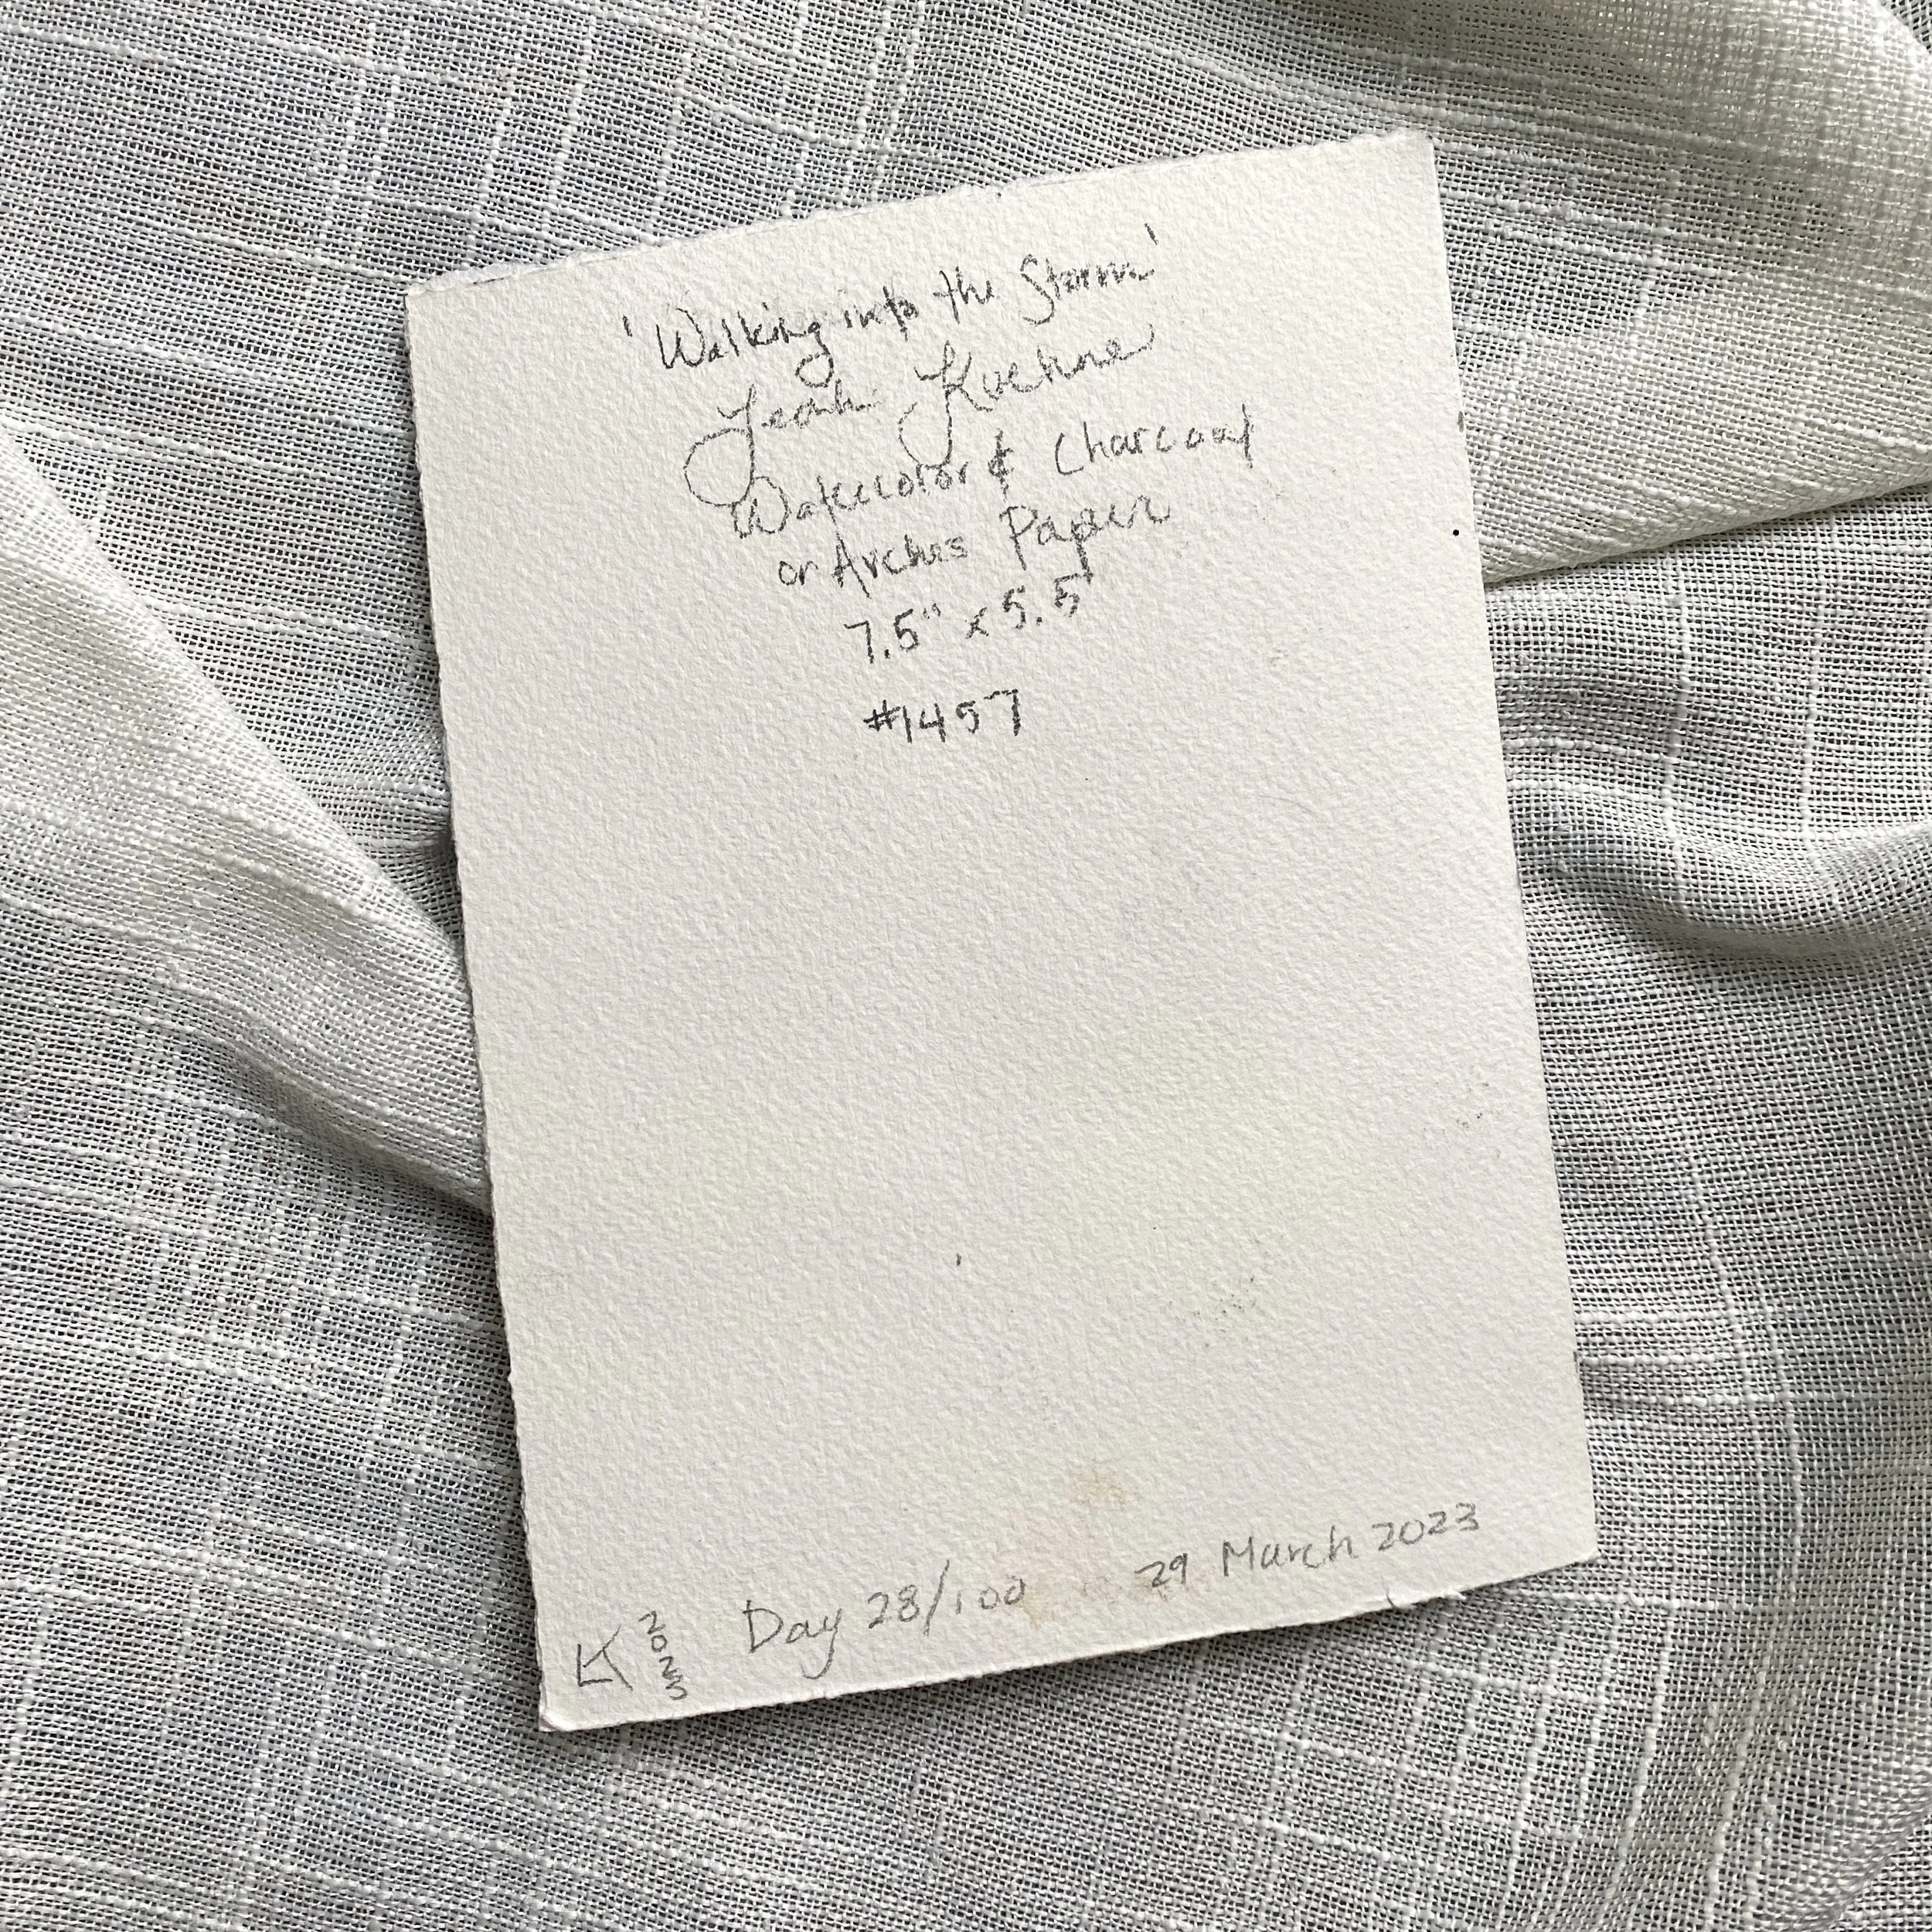 'Walking into the Storm'
Leah Kuehne
Watercolor & Charcoal
on Arches Paper
7.5" x 5.5"
#1457
LK 2023 Day 28/100 29 March 2023